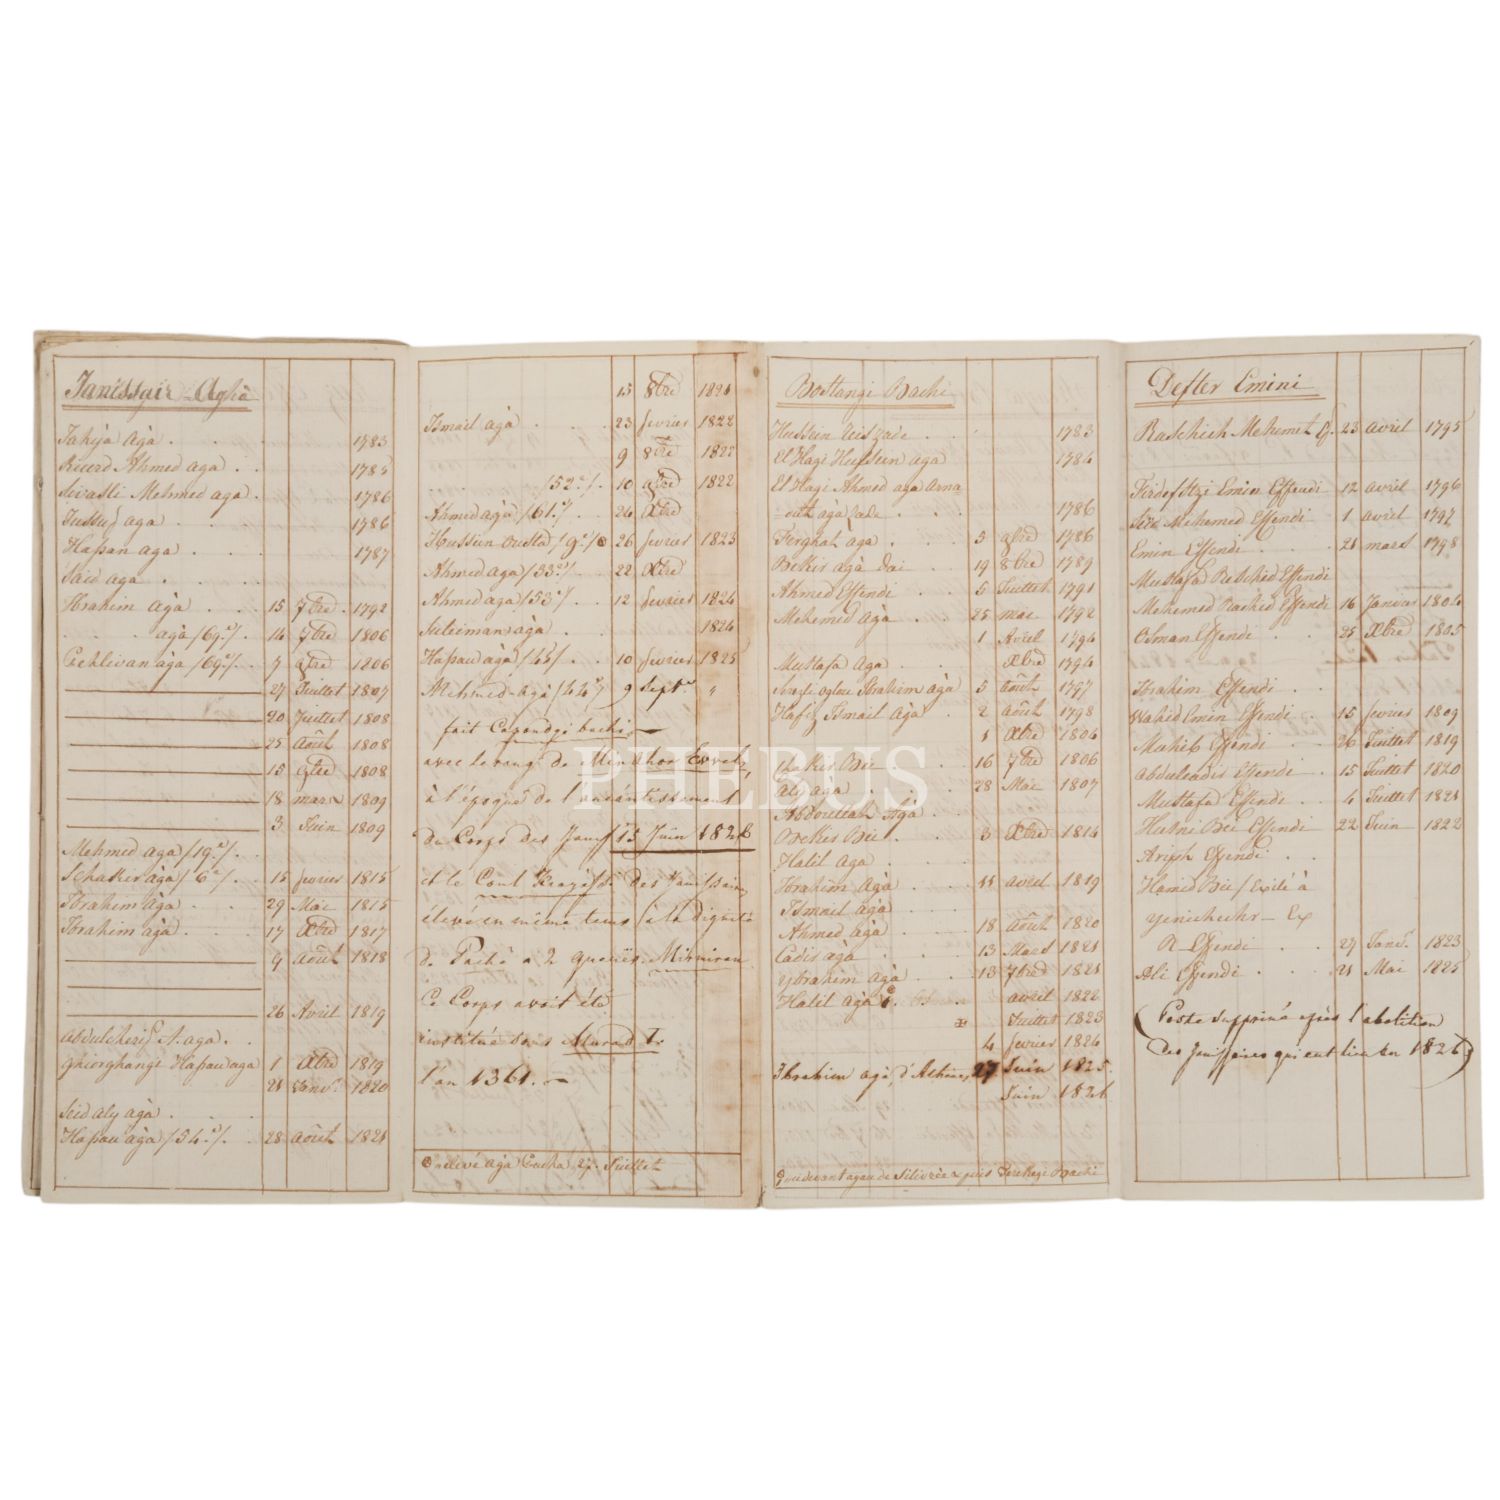 Janissair Aghà
Jahja Aga 1783
Kuurd Ahmed aga 1785
Sivasli Mehmed aga 1786
Jussuf aga 1786
Haſsan aga 1787
Said aga
Ibrahim Aga 15 7bre 1792
agà /69.e/ 14 7bre 1806
Pehlivan àga /69.e/ 7 9bre 1806
27 Juillet 1807
20 Juillet 1808
25 Août 1808
15 9bre 1808
18 mars 1809
3 Juin 1809
Mehmed aga /19.e/
Schaker àga /6.e/ 15 fevrier 1815
Ibrahim Aga 29 Mai 1815
Ibrahim àga 17 Xbre 1817
9 Août 1818
26 Avril 1819
Abdulcherif S. aga
Ghiorghangi Haſsan aga 1 Xbre 1819
21 Janv.r 1820
Seid aly agà
Haſsan agà /54.e/ 28 août 1821
15 8bre 1821
Ismail agà 23 fevrier 1822
9 8bre 1822
/52.e/ 10 9bre 1822
Ahmed aga /61.e/ 24 Xbre
Hussein Ousta /9.e/ 26 fevrier 1823
Ahmed aga /33.e/ 22 Xbre
Ahmed aga /53.e/ 12 fevrier 1824
Suleiman aga 1824
Haſsan agà /45/ 10 fevrier 1825
Mehmed-Agà /44.e/ 9 Sept.re "
fait Capoudgi bachi
avec le rang de
à l'époque de l'anéantissement
du Corps des Janiſs 15 Juin 1826
et le Coul Kiagaſsi des Janiſsaires
élevé en même tems à la dignité
de Pacha à 2 queües. Mirmiran
Ce Corps avoit été
institué sous Murad I.
l'an 1361.
Enlevé agà Pacha 27 Juillet
Bostangi Bachi
Hussein 1783
El Hagi Hussein aga 1784
El Hagi Ahmed aga Arna
-outh aga zade 1786
Ferghat aga 5 9bre 1786
Bekir agà Dai 19 8bre 1789
Ahmed Effendi 5 Juillet 1791
Mehemed Agà 25 mai 1792
1 Avril 1794
Mustafa Aga Xbre 1794
oglou Ibrahim aga 5 Août 1797
Hafiz Ismail Aga 2 août 1798
1 Xbre 1804
Chakir Bei 16 7bre 1806
Aly aga 28 Mai 1807
Abdoullah Agà
Bekir Bei 3 Xbre 1814
Halil Aga
Ibrahim Agà 11 avril 1819
Ismail agà
Ahmed àga 18 Août 1820
Cadir agà 13 Mars 1821
Ybrahim agà 13 7bre 1821
Halil Agà avril 1822
Juillet 1823
4 fevrier 1824
Ibrahim agà, d'Athènes 27 Juin 1825.
Juin 1826
cidevant aga de Silivrée
Defter Emini
Raschich Mehemet E. 23 avril 1795
Emin Effendi 12 avril 1796
Mehemed Effendi 1 avril 1797
Emin Effendi 21 mars 1798
Mustafa Reschid Effendi
Mehemed Raschid Effendi 16 Janvier 1804
Osman Effendi 25 Xbre 1805
Ibrahim Effendi
Wahid Emin Effendi 15 fevrier 1809
Mahib Effendi 26 Juillet 1819
Abdulcadir Effendi 15 Juillet 1820
Mustafa Effendi 4 Juillet 1821
Husni Bei Effendi 22 Juin 1822
Ariph Effendi
Hamid Bei /Exilé à
Yenichechr - Ex
R-Effendi 27 Janv.r 1823
Ali Effendi 21 Mai 1825
(Poste supprimé après l'abolition
des Janiſsaires qui eut lieu en 1826)
PHEBUS